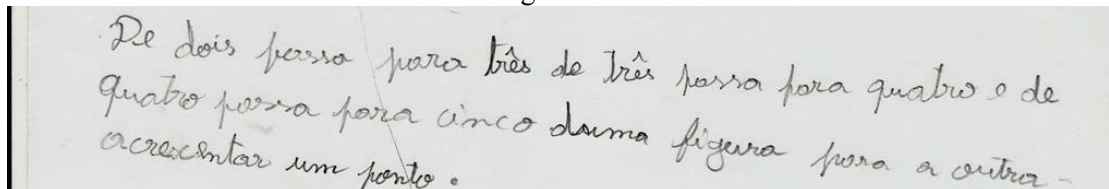 De dois passa para três de três passa para quatro e de
quatro passa para cinco duma figura para a outra
acrescentar um ponto.